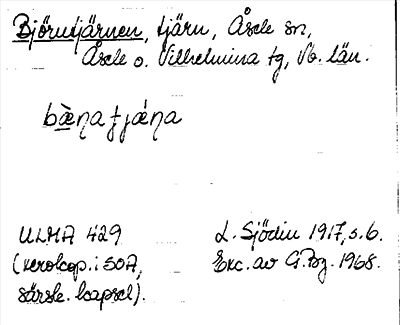 Björntjärnen, tjärn, Åsele sn,
Åsele o. Vilhelmina tg, Vb. län.
bæ̀ɳa ʈjæ̀ɳa
ULMA 429
(xerokop. i SOA,
särsk. kapsel).
L. Sjödin 1917, s. 6.
Exc. av G. Bg. 1968.